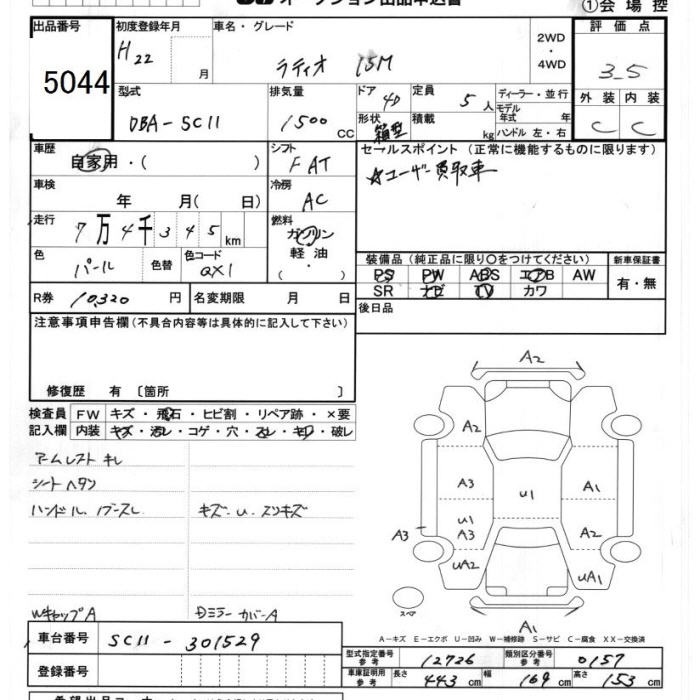 ①会場控
出品番号
5044
初度登録年月
H22 月
車名・グレード
ラティオ 15M
2WD
・
4WD
評価点
3.5
外装 内装
C C
型式
DBA-SC11
排気量
1500 cc
ドア
4D
形状
箱型
定員
5人
積載
kg
ディーラー・並行
モデル年式 年
ハンドル 左・右
車歴
自家用・( )
シフト
FAT
車検
年 月( 日)
冷房
AC
走行
7万4千345km
燃料
ガソリン
軽油
・
色
パール
色替
色コード
QX1
R券 10320 円
名変期限 月 日
セールスポイント(正常に機能するものに限ります)
☆ユーザー買取車
装備品(純正品に限り○をつけてください)
PS PW ABS エアB AW
SR ナビ TV カワ
新車保証書
有・無
後日品
注意事項申告欄(不具合内容等は具体的に記入して下さい)
修復歴 有 〔箇所 〕
検査員
記入欄
FW キズ・飛石・ヒビ割・リペア跡・×要
内装 キズ・汚レ・コゲ・穴・スレ・キレ・破レ
アームレスト キレ
シート ヘタリ
ハンドル、ノブスレ
キズ・U・スリキズ
WキャップA
DミラーカバーA
A2
A2
A3
A1
U1
U1
A3
A3
A2
UA2
UA1
スペア
A1
A-キズ E-エクボ U-凹み W-補修跡 S-サビ C-腐食 XX-交換済
車台番号
SC11-301529
登録番号
型式指定番号
参考
12726
類別区分番号
参考
0157
車庫証明用
参考
長さ 443 cm
幅 169 cm
高さ 153 cm